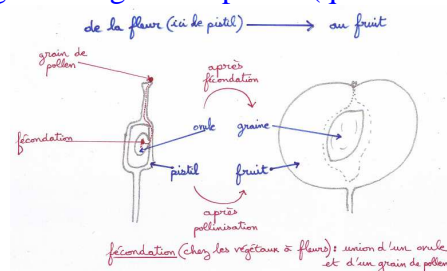 de la fleur (ici de pistil) → au fruit
grain de
pollen
après
fécondation
fécondation
ovule graine
pistil fruit
après
pollinisation
fécondation (chez les végétaux à fleurs) : union d'un ovule
et d'un grain de pollen